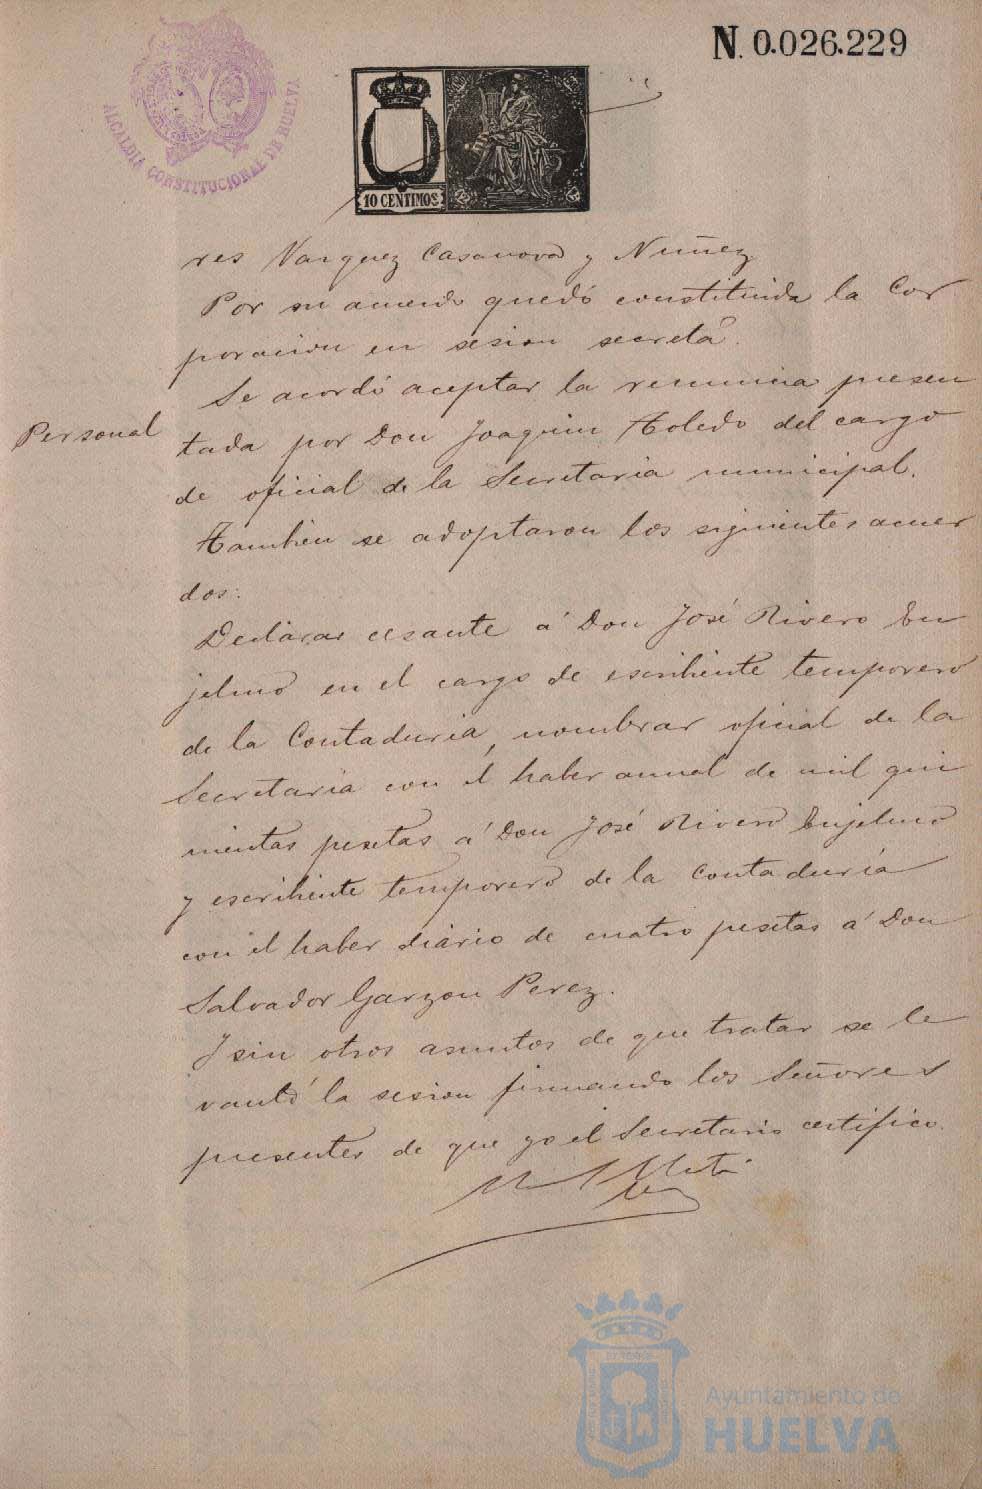 N. 0.026.229
ALCALDIA CONSTITUCIONAL DE HUELVA
10 CENTIMOS
res Vazquez Casanova y Nuñez
Por su acuerdo quedó constituida la Cor
poracion en sesion secreta.
Se acordó aceptar la renuncia presen
Personal
tada por Don Joaquin Toledo del cargo
de oficial de la Secretaria municipal.
Tambien se adoptaron los siguientes acuer
dos:
Declarar cesante á Don José Rivero En
jelmo en el cargo de escribiente temporero
de la Contaduria, nombrar oficial de la
Secretaria con el haber anual de mil qui
nientas pesetas á Don José Rivero Enjelmo
y escribiente temporero de la Contaduria
con el haber diário de cuatro pesetas á Don
Salvador Garzon Perez.
Y sin otros asuntos de que tratar se le
vantó la sesion firmando los Señores
presentes de que yo el Secretario certifico.
Ayuntamiento de
HUELVA